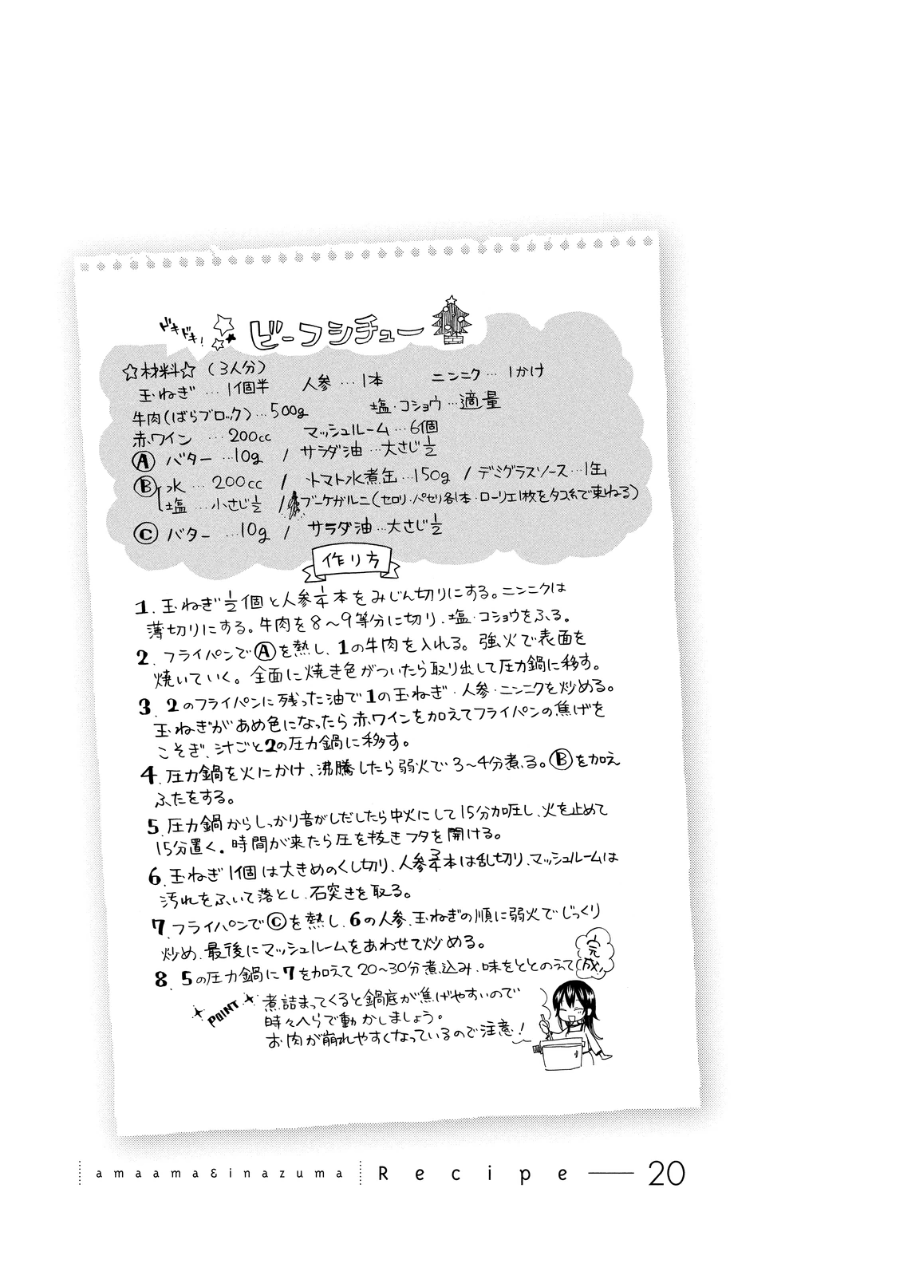 ドキドキ!
ビーフシチュー
☆材料☆(3人分)
玉ねぎ…1個半 人参…1本 ニンニク…1かけ
牛肉(ばらブロック)…500g 塩・コショウ…適量
赤ワイン…200cc マッシュルーム…6個
Ⓐ バター…10g / サラダ油…大さじ1/2
Ⓑ 水…200cc / トマト水煮缶…150g / デミグラスソース…1缶
塩…小さじ1/2 / ブーケガルニ(セロリ・パセリ各1本・ローリエ1枚をタコ糸で束ねる)
Ⓒ バター…10g / サラダ油…大さじ1/2
作り方
1. 玉ねぎ1/2個と人参1/4本をみじん切りにする。ニンニクは
薄切りにする。牛肉を8〜9等分に切り、塩・コショウをふる。
2. フライパンでⒶを熱し、1の牛肉を入れる。強火で表面を
焼いていく。全面に焼き色がついたら取り出して圧力鍋に移す。
3. 2のフライパンに残った油で1の玉ねぎ・人参・ニンニクを炒める。
玉ねぎがあめ色になったら赤ワインを加えてフライパンの焦げを
こそぎ、汁ごと2の圧力鍋に移す。
4. 圧力鍋を火にかけ、沸騰したら弱火で3〜4分煮る。Ⓑを加え
ふたをする。
5. 圧力鍋からしっかり音がしだしたら中火にして15分加圧し、火を止めて
15分置く。時間が来たら圧を抜きフタを開ける。
6. 玉ねぎ1個は大きめのくし切り、人参3/4本は乱切り、マッシュルームは
汚れをふいて落とし、石突きを取る。
7. フライパンでⒸを熱し、6の人参、玉ねぎの順に弱火でじっくり
炒め、最後にマッシュルームをあわせて炒める。
8. 5の圧力鍋に7を加えて20〜30分煮込み、味をととのえて
完成
POINT
煮詰まってくると鍋底が焦げやすいので
時々へらで動かしましょう。
お肉が崩れやすくなっているので注意!
amaama&inazuma Recipe — 20